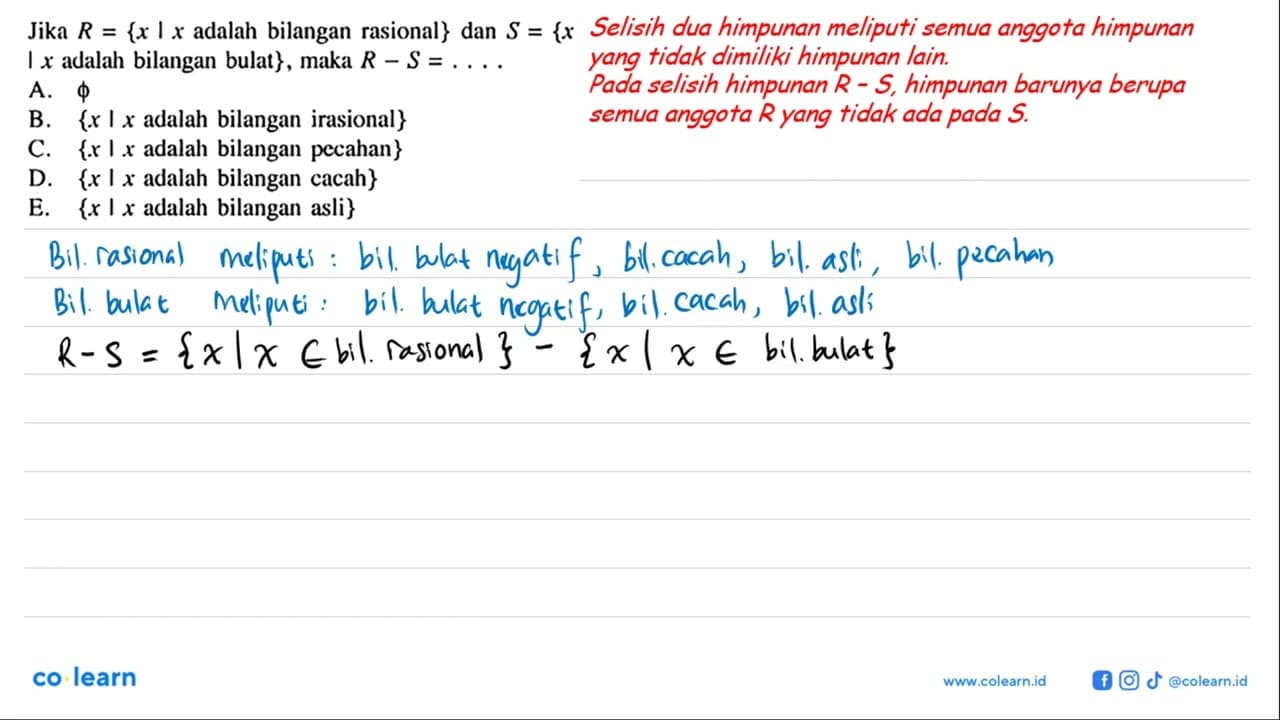 Jika R = {x | x adalah bilangan rasional} dan S = {x
| x adalah bilangan bulat}, maka R – S = . . . .
A. ϕ
B. {x | x adalah bilangan irasional}
C. {x | x adalah bilangan pecahan}
D. {x | x adalah bilangan cacah}
E. {x | x adalah bilangan asli}
Selisih dua himpunan meliputi semua anggota himpunan
yang tidak dimiliki himpunan lain.
Pada selisih himpunan R - S, himpunan barunya berupa
semua anggota R yang tidak ada pada S.
Bil. rasional meliputi : bil. bulat negatif, bil. cacah, bil. asli, bil. pecahan
Bil. bulat meliputi : bil. bulat negatif, bil. cacah, bil. asli
R - S = {x | x ∈ bil. rasional} - {x | x ∈ bil. bulat}
co·learn
www.colearn.id
@colearn.id